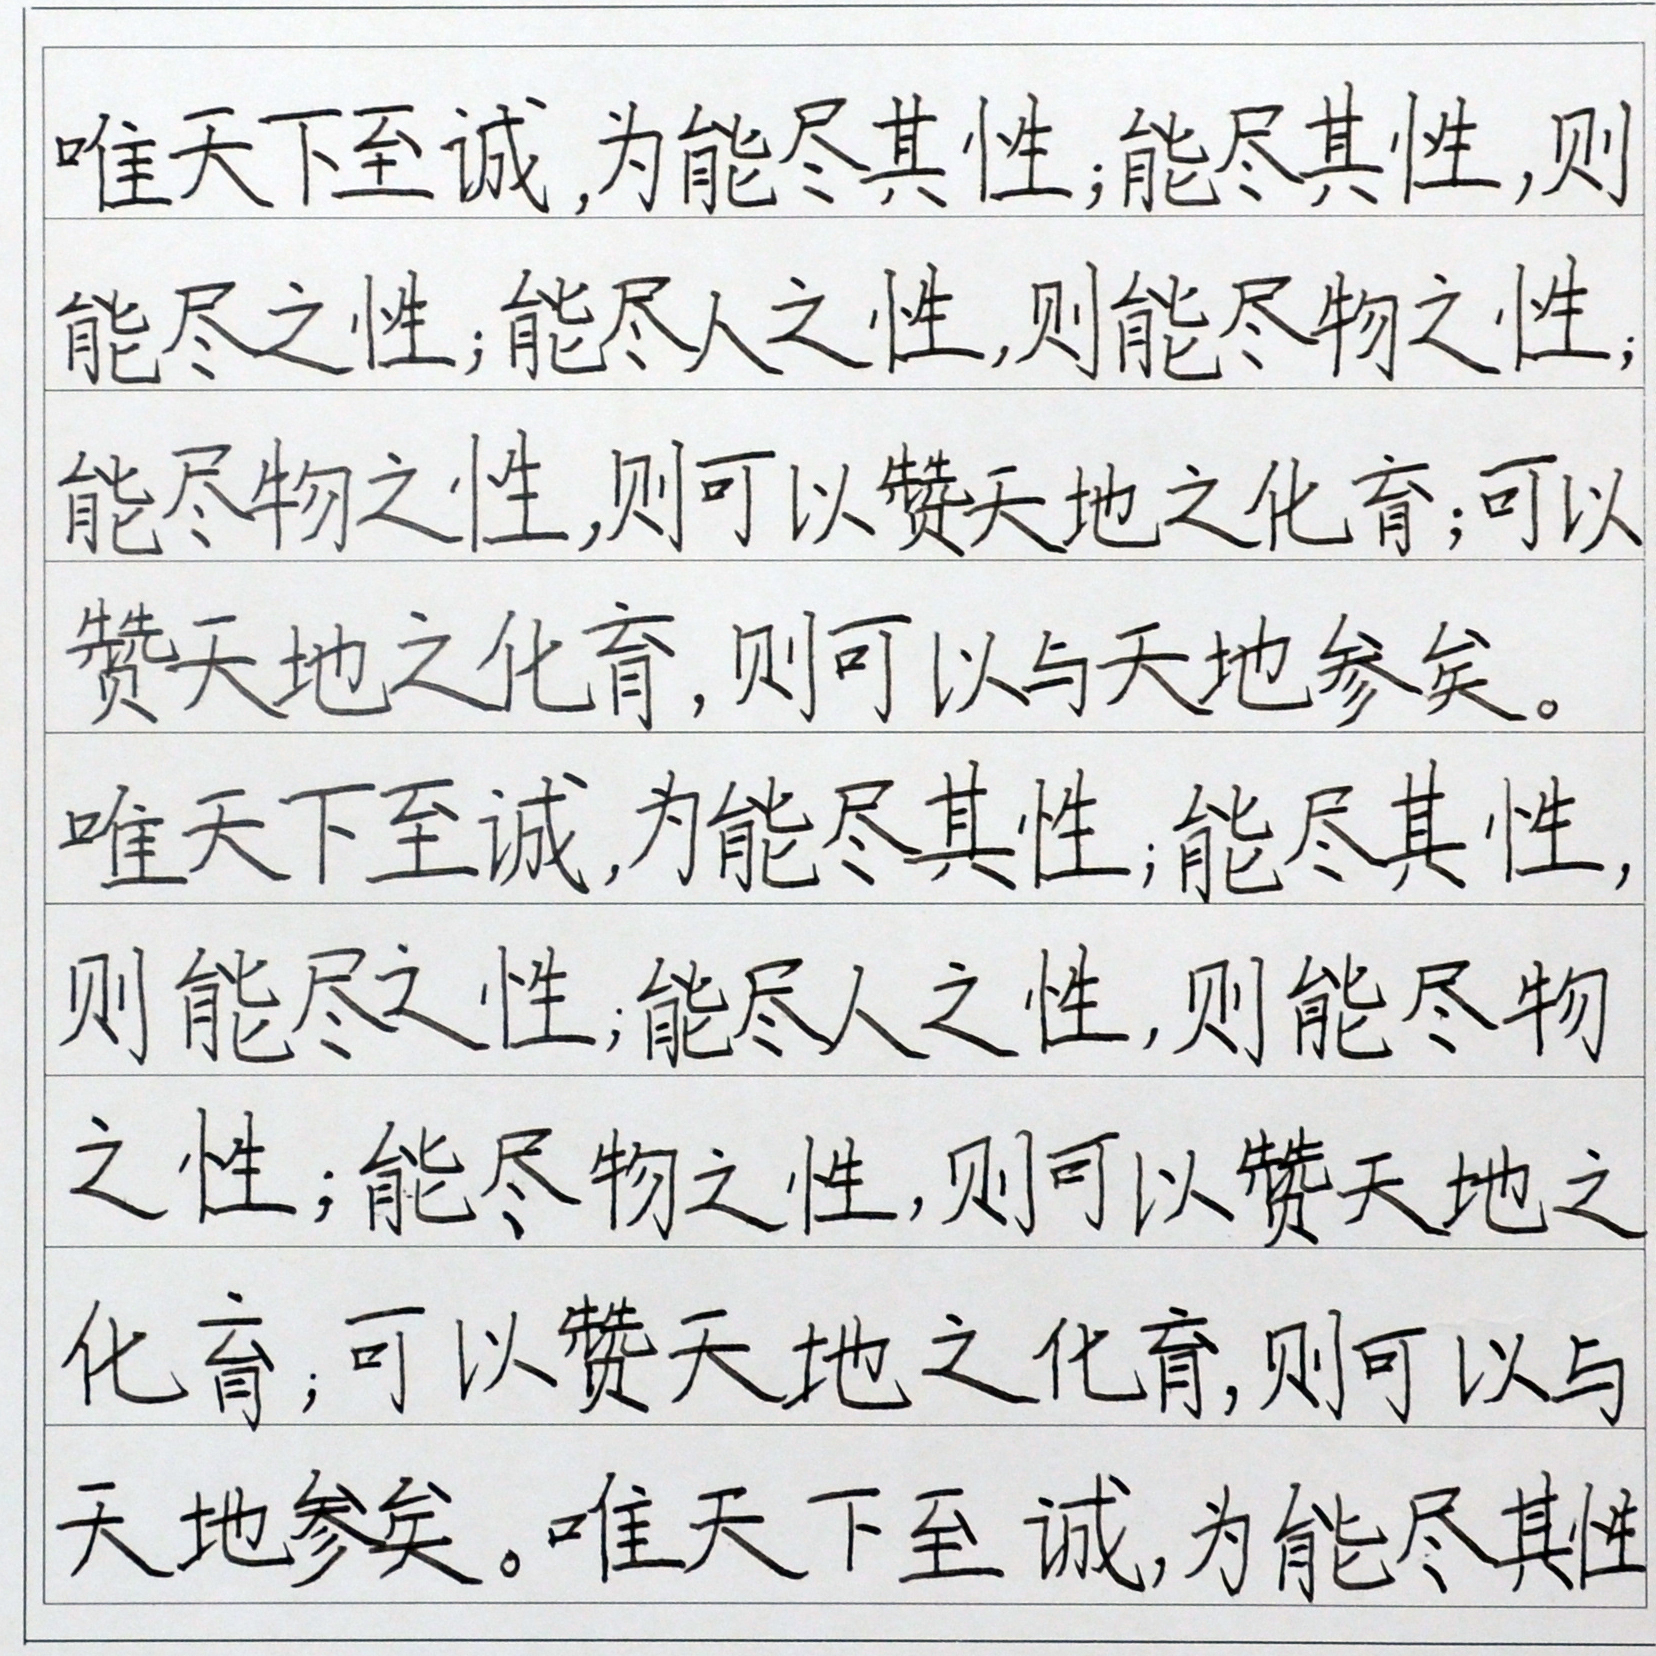 唯天下至诚,为能尽其性;能尽其性,则
能尽之性;能尽人之性,则能尽物之性;
能尽物之性,则可以赞天地之化育;可以
赞天地之化育,则可以与天地参矣。
唯天下至诚,为能尽其性;能尽其性,
则能尽之性;能尽人之性,则能尽物
之性;能尽物之性,则可以赞天地之
化育;可以赞天地之化育,则可以与
天地参矣。唯天下至诚,为能尽其性